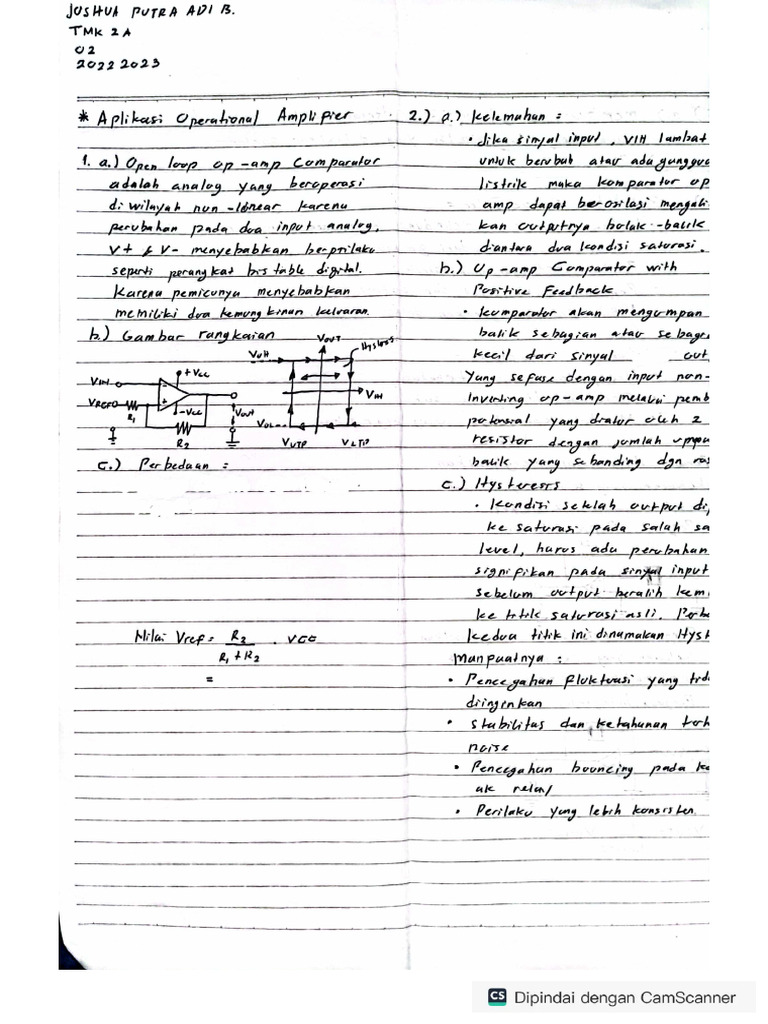 JOSHUA PUTRA ADI B.
TMK 2A
02
2022 2023
* Aplikasi Operational Amplifier
1. a.) Open loop op-amp Comparator
adalah analog yang beroperasi
di wilayah non-linear karena
perubahan pada dua input analog,
V+ & V- menyebabkan berprilaku
seperti perangkat bistable digital.
Karena pemicunya menyebabkan
memiliki dua kemungkinan keluaran.
b.) Gambar rangkaian
VOUT
VOH
Hysteresis
+Vcc
VIN
VREF
R1
-Vcc
VOUT
R2
VIN
VOL
VUTP
VLTP
c.) Perbedaan :
Nilai Vref = R2 . VCC
R1 + R2
=
2.) a.) Kelemahan :
• Jika sinyal input, VIN lambat
untuk berubah atau ada ganggua
listrik maka komparator op
amp dapat berosilasi mengali
kan outputnya bolak-balik
diantara dua kondisi saturasi.
b.) Op-amp Comparator with
Positive Feedback
• komparator akan mengumpan
balik sebagian atau sebagi
kecil dari sinyal out
yang sefase dengan input non-
Inverting op-amp melalui pemb
potensial yang diatur oleh 2
resistor dengan jumlah umpa
balik yang sebanding dgn ras
c.) Hysteresis
• Kondisi seklah output di
ke saturasi pada salah sa
level, harus ada perubahan
signifikan pada sinyal input
sebelum output beralih kem
ke titik saturasi asli. Perbe
kedua titik ini dinamakan Hyst
Manfaatnya :
• Pencegahan Fluktuasi yang tida
diinginkan
• Stabilitas dan ketahanan terh
noise
• Pencegahan bouncing pada ko
ak relay
• Perilaku yang lebih konsisten.
CS Dipindai dengan CamScanner